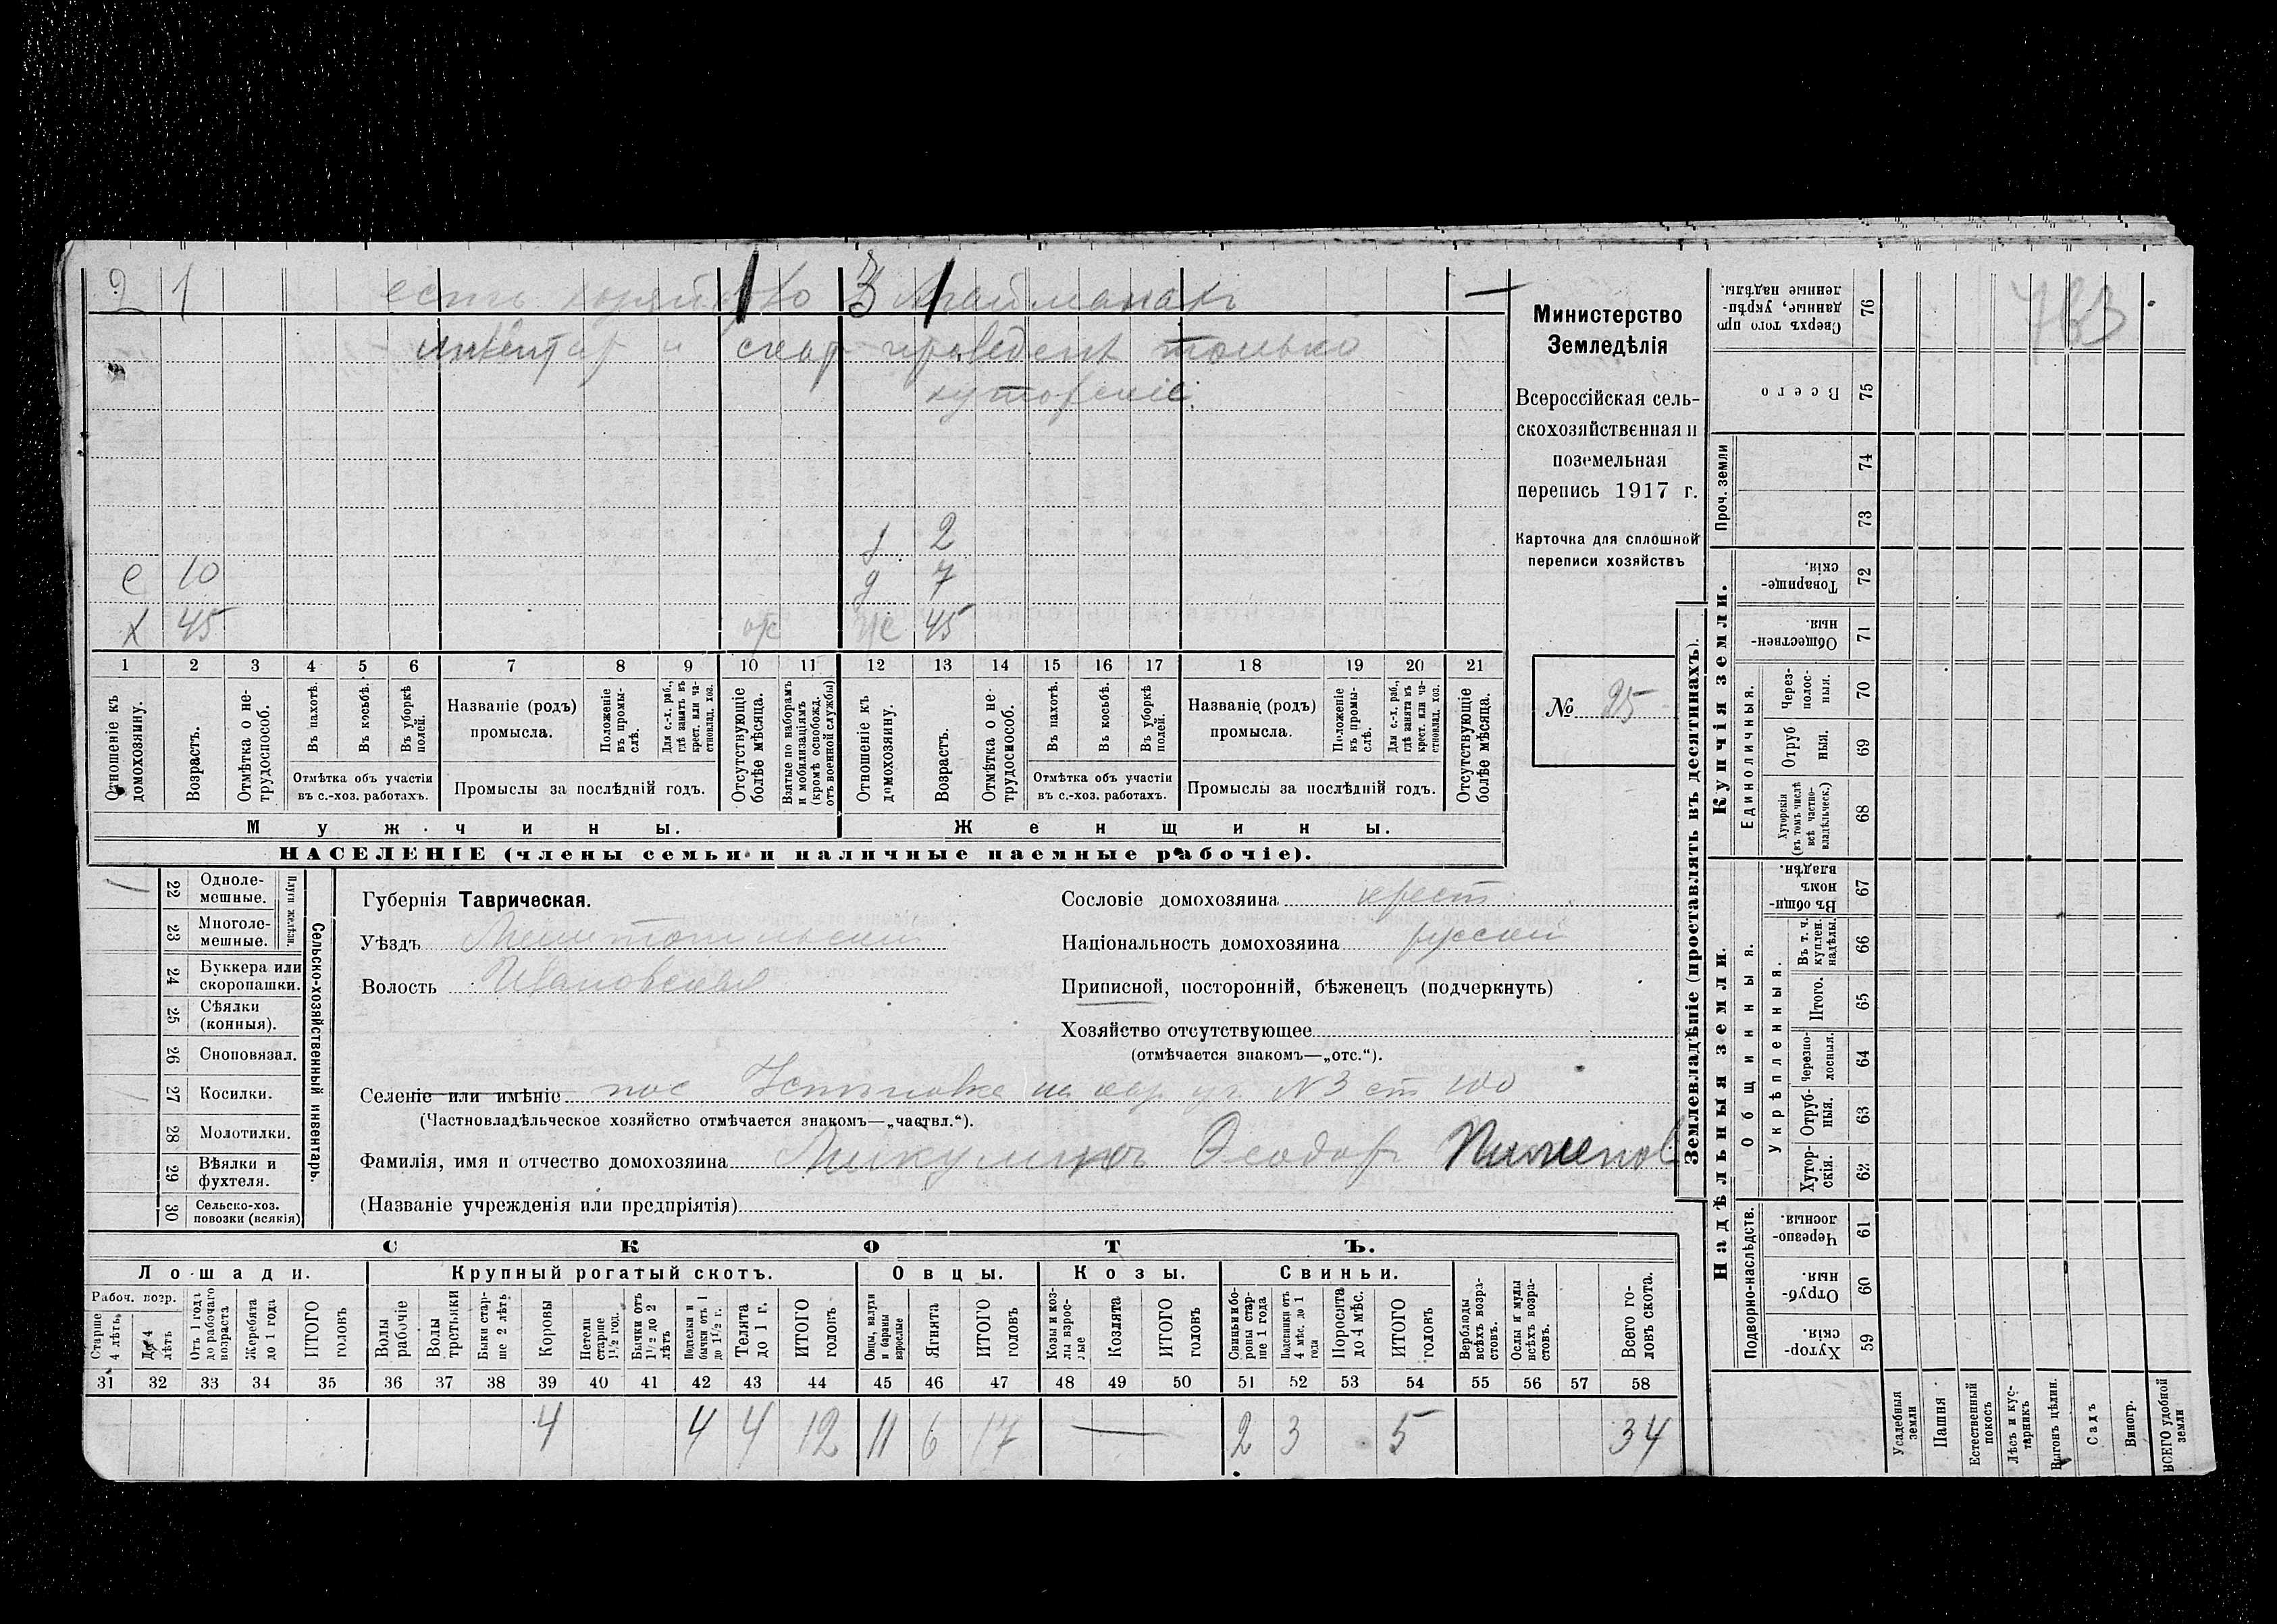 2 1 1 3 1 —
есть хозяйство в Агайманахъ
инвентар и скот приведен только
хуторскіе.
д 2
с 10 д 7
х 45 ж 45
1 2 3 4 5 6 7 8 9 10 11 12 13 14 15 16 17 18 19 20 21
Отношеніе къ домохозяину.
Возрастъ.
Отмѣтка о нетрудоспособ.
Въ пахотѣ.
Въ косьбѣ.
Въ уборкѣ полей.
Отмѣтка объ участіи въ с.-хоз. работахъ.
Названіе (родъ) промысла.
Положеніе въ промыслѣ.
Для с.-х. раб., гдѣ занятъ въ крест. или частновлад. хоз.
Промыслы за послѣдній годъ.
Отсутствующіе болѣе мѣсяца.
Взятые по наборамъ и мобилизаціямъ (кромѣ освобожд. отъ военной службы)
Отношеніе къ домохозяину.
Возрастъ.
Отмѣтка о нетрудоспособ.
Въ пахотѣ.
Въ косьбѣ.
Въ уборкѣ полей.
Отмѣтка объ участіи въ с.-хоз. работахъ.
Названіе (родъ) промысла.
Положеніе въ промыслѣ.
Для с.-х. раб., гдѣ занята въ крест. или частновлад. хоз.
Промыслы за послѣдній годъ.
Отсутствующіе болѣе мѣсяца.
Мужчины.
Женщины.
НАСЕЛЕНІЕ (члены семьи и наличные наемные рабочіе).
Министерство
Земледѣлія
Всероссійская сель-
скохозяйственная и
поземельная
перепись 1917 г.
Карточка для сплошной
переписи хозяйствъ
№ 25
22 Одноле-мешные.
23 Многоле-мешные.
Плуги желѣзн.
24 Буккера или скоропашки.
25 Сѣялки (конныя).
26 Сноповязал.
27 Косилки.
28 Молотилки.
29 Вѣялки и фухтеля.
30 Сельско-хоз. повозки (всякія)
Сельско-хозяйственный инвентарь.
Губернія Таврическая.
Уѣздъ Мелитопольскій
Волость Ивановская
Сословіе домохозяина крест.
Національность домохозяина русскій
Приписной, посторонній, бѣженецъ (подчеркнуть)
Хозяйство отсутствующее
(отмѣчается знакомъ—„отс.“).
Селеніе или имѣніе пос Успеновка на уч. N3 ст 100
(Частновладѣльческое хозяйство отмѣчается знакомъ—„частвл.“).
Фамилія, имя и отчество домохозяина Феодор Пименов
(Названіе учрежденія или предпріятія)
СКОТЪ.
Лошади.
Крупный рогатый скотъ.
Овцы.
Козы.
Свиньи.
Рабоч. возр.
Старше 4 лѣтъ.
До 4 лѣтъ
Отъ 1 года до рабочаго возраста
Жеребята до 1 года
ИТОГО головъ
Волы рабочіе
Волы третьяки
Быки старше 2 лѣтъ
Коровы
Нетели старше 1½ год.
Бычки отъ 1½ до 2 лѣтъ
Подтелки и бычки отъ 1 до 1½ г.
Телята до 1 г.
ИТОГО головъ
Овцы, валухи и бараны взрослые
Ягнята
ИТОГО головъ
Козы и козлы взрослые
Козлята
ИТОГО головъ
Свиньи и боровы старше 1 года
Подсвинки отъ 4 мѣс. до 1 года
Поросята до 4 мѣс.
ИТОГО головъ
Верблюды всѣхъ возрастовъ.
Ослы и мулы всѣхъ возрастовъ.
Всего головъ скота.
31 32 33 34 35 36 37 38 39 40 41 42 43 44 45 46 47 48 49 50 51 52 53 54 55 56 57 58
4 4 4 12 11 6 17 — 2 3 5 34
Землевладѣніе (проставлять въ десятинахъ).
763
76 Сверхъ того проданные, укрѣпленные надѣлы.
75 Всего
Проч. земли
74
73
Купчія земли.
72 Товарищескія.
71 Общественныя.
Единоличныя.
70 Черезполосныя.
69 Отрубныя.
68 Хуторскія (въ томъ числѣ всѣ частновладѣльческ.)
Надѣльныя земли.
Общинныя.
67 Въ общинномъ владѣн.
Укрѣпленныя.
66 Въ т. ч. куплен. надѣлы.
65 Итого.
64 Черезполосныя.
63 Отрубныя.
62 Хуторскія.
Подворно-наслѣдств.
61 Черезполосныя.
60 Отрубныя.
59 Хуторскія.
Усадебныя земли
Пашня
Естественный покосъ
Лѣсъ и кустарникъ
Выгонъ цѣлин.
Садъ
Виногр.
ВСЕГО удобной земли